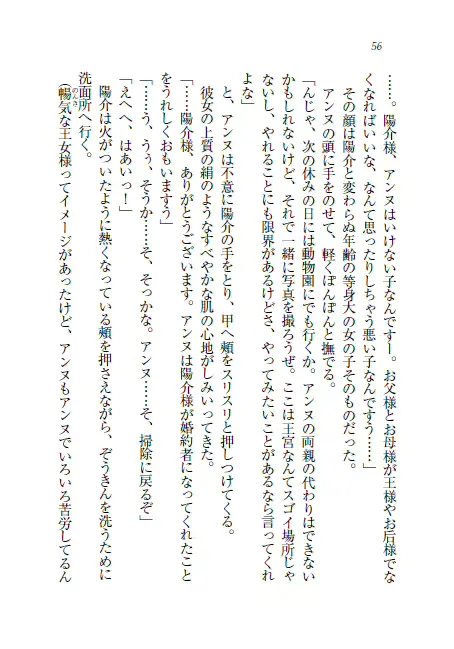 56
……。陽介様、アンヌはいけない子なんですー。お父様とお母様が王様やお后様でな
くなればいいな、なんて思ったりしちゃう悪い子なんですう……」
その顔は陽介と変わらぬ年齢の等身大の女の子そのものだった。
アンヌの頭に手をのせて、軽くぽんぽんと撫でる。
「んじゃ、次の休みの日には動物園にでも行くか。アンヌの両親の代わりはできない
かもしれないけど、それで一緒に写真を撮ろうぜ。ここは王宮なんてスゴイ場所じゃ
ないし、やれることにも限界があるけどさ、やってみたいことがあるなら言ってくれ
よな」
と、アンヌは不意に陽介の手をとり、甲へ頰をスリスリと押しつけてくる。
彼女の上質の絹のようなすべやかな肌の心地がしみいってきた。
「……陽介様、ありがとうございます。アンヌは陽介様が婚約者になってくれたこと
をうれしくおもいますう」
「……う、うぅ、そうか……そ、そっかな。アンヌ……そ、掃除に戻るぞ」
「えへへ、はあいっ！」
陽介は火がついたように熱くなっている頰を押さえながら、ぞうきんを洗うために
洗面所へ行く。
（暢気な王女様ってイメージがあったけど、アンヌもアンヌでいろいろ苦労してるん
のんき